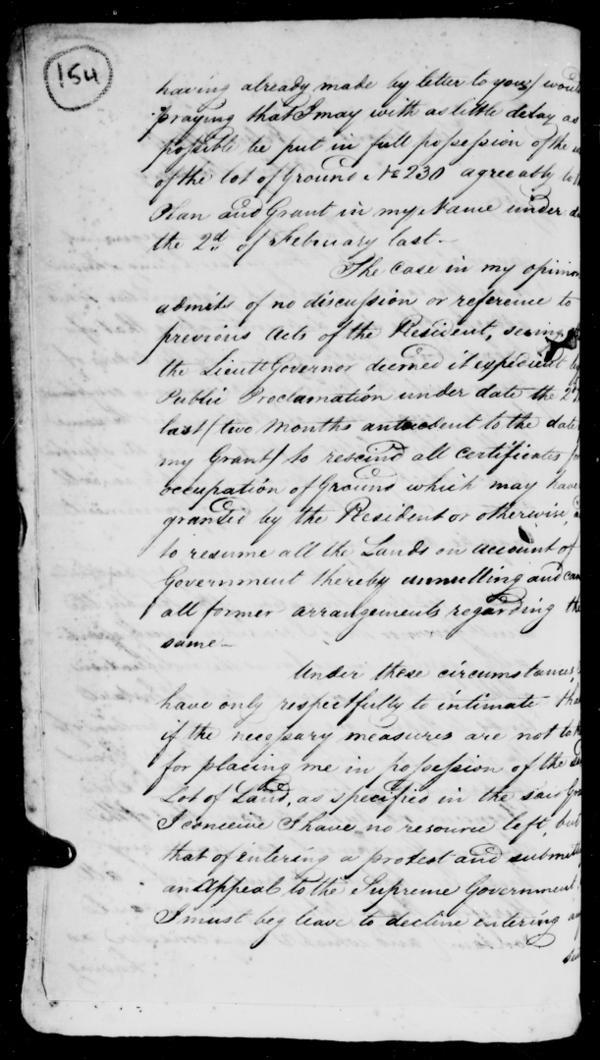 154
having already made by letter to you / woul
praying that I may with as little delay as
possible be put in full possession of the
of the lot of Ground No 230 agreeably to
Plan and Grant in my Name under d
the 2d. of February last.—
The case in my opinion
admits of no discussion or reference to
previous acts of the Resident, seeing
the Lieutt Governor deemed it expedient by
Public Proclamation under date the 2
last / two Months antecedent to the date
my Grant / to rescind all certificates for
occupation of Ground which may have
granted by the Resident or otherwise,
to resume all the Lands on account of
Government thereby annulling and can
all former arrangements regarding the
same—
Under these circumstances,
have only respectfully to intimate tha
if the necessary measures are not to
for placing me in possession of the
Lot of Land, as specified in the said Gra
I conceive I have no resource left but
that of entering a protest and submit
an Appeal to the Supreme Government.
I must beg leave to decline entering